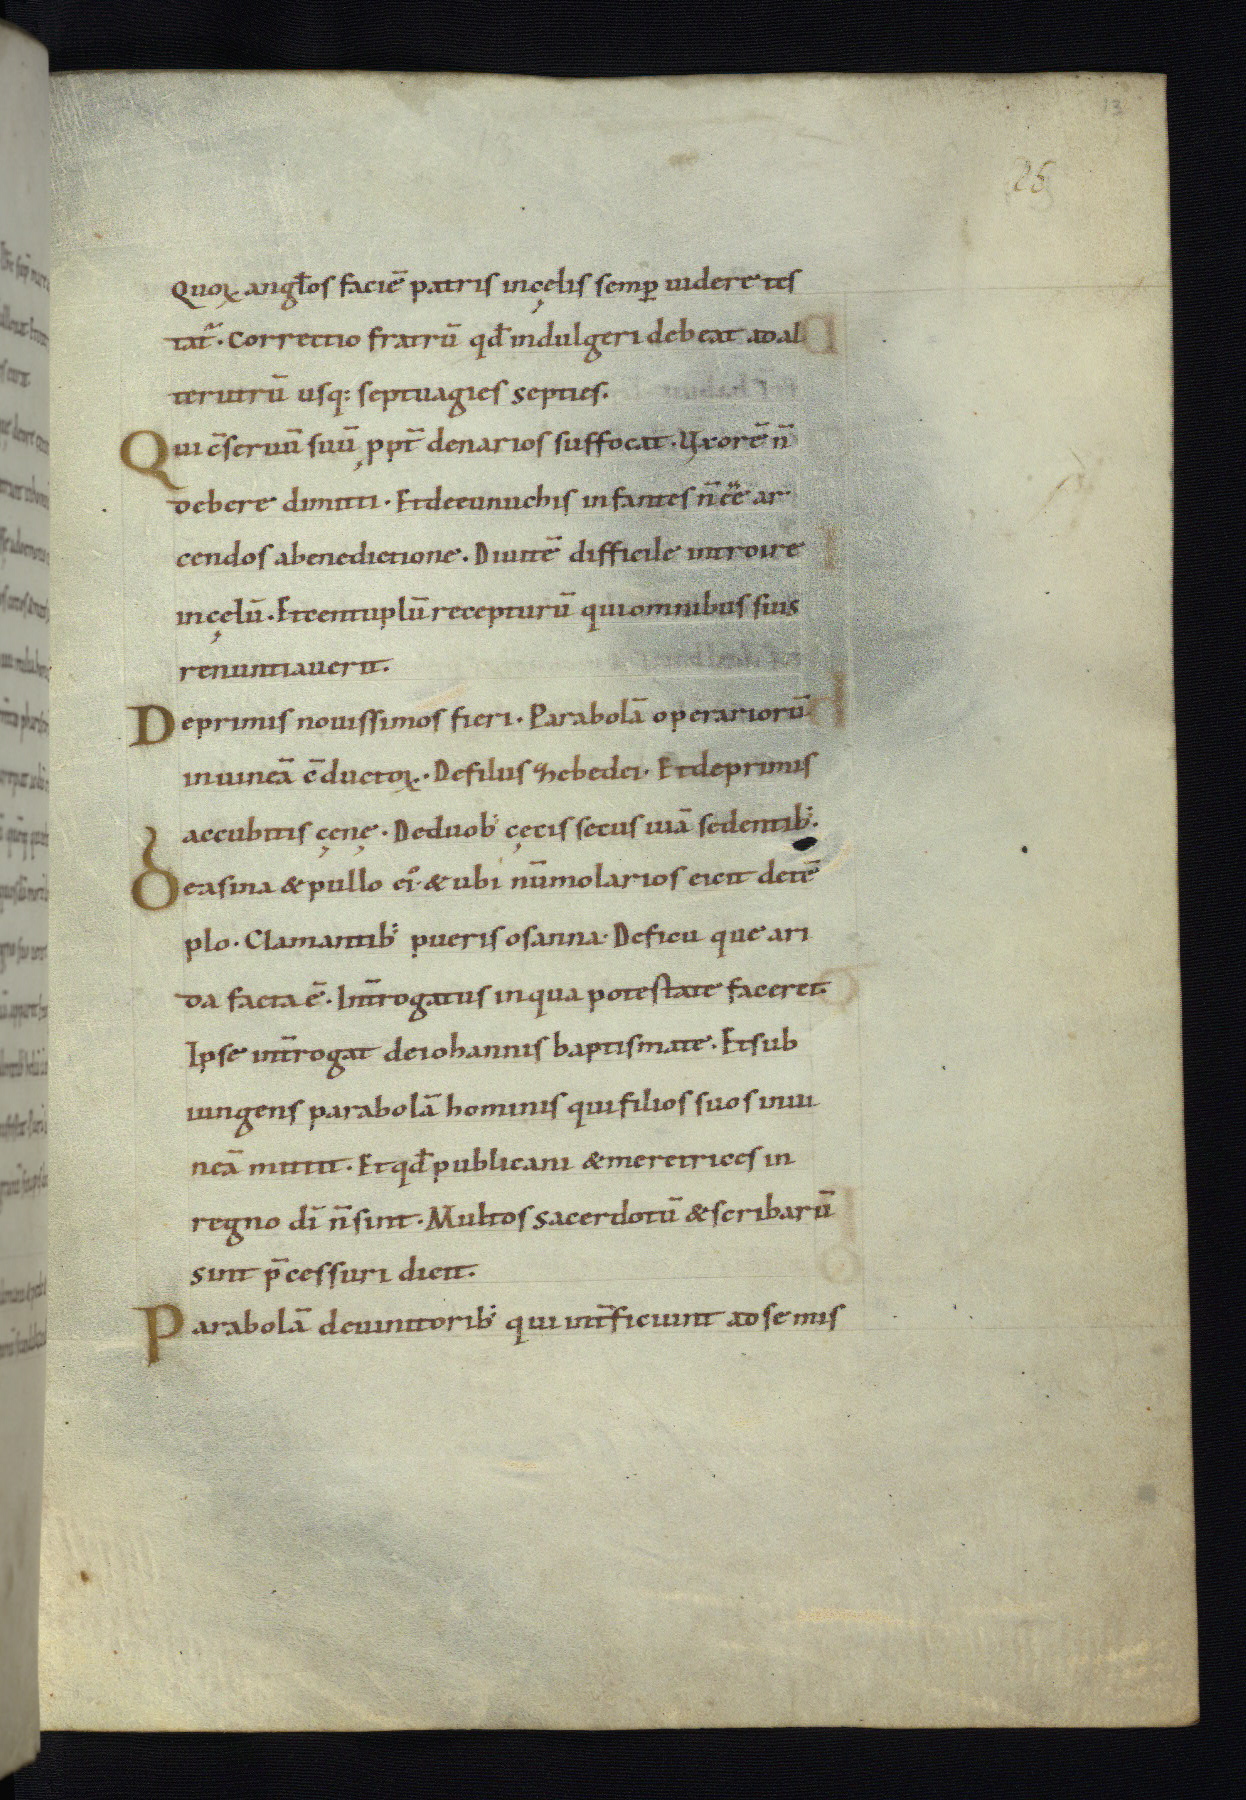 13
25
Quoꝝ angłos faciē patris incęlis semꝑ uidere tes
tat᷑. Correctio fratrū qđ indulgeri debeat adal
terutrū usq: septuagies septies.
Qui c̄seruū suū ppt̄ denarios suffocat. Uxorē n̄
debere dimitti. Etdeeunuchis infantes n̄ ēē ar
cendos abenedictione. Diuitē difficile introire
incęlū. Etcentuplū recepturū quiomnibus suis
renuntiauerit.
Deprimis nouissimos fieri. Parabolā operariorū
inuineā c̄ductoꝝ. Defiliis zebedei. Etdeprimis
accubitis cęnę. Deduob; cęcis secus uiā sedentib;.
Deasina & pullo ei᷑. & ubi nūmolarios eicit detē
plo. Clamantib; pueris osanna. Deficu que ari
da facta ē. Int̄rogatus inqua potestate faceret.
Ipse int̄rogat deiohannis baptismate. Etsub
iungens parabolā hominis quifilios suos inui
neā mittit. Etqđ publicani & meretrices in
regno dī n̄ sint. Multos sacerdotū & scribarū
sint p̄cessuri dicit.
Parabolā deuinitorib; qui int̄ficiunt adse mis